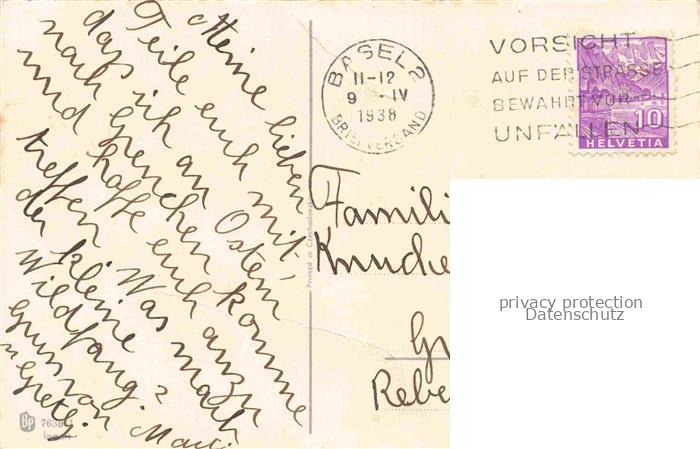 Meine lieben
Teile euch mit,
dass ich an Ostern
nach Grenchen komme
und hoffe euch anzu
treffen. Was macht
der kleine
Wildfang?
Gruss von
Printed in Czechoslovakia
Bp
Import
BASEL 2
11-12
9. IV
1938
BRIEFVERSAND
VORSICHT
AUF DER STRASSE
BEWAHRT VOR
UNFÄLLEN
10
HELVETIA
Famili
Knuche
G
Rebe
privacy protection
Datenschutz